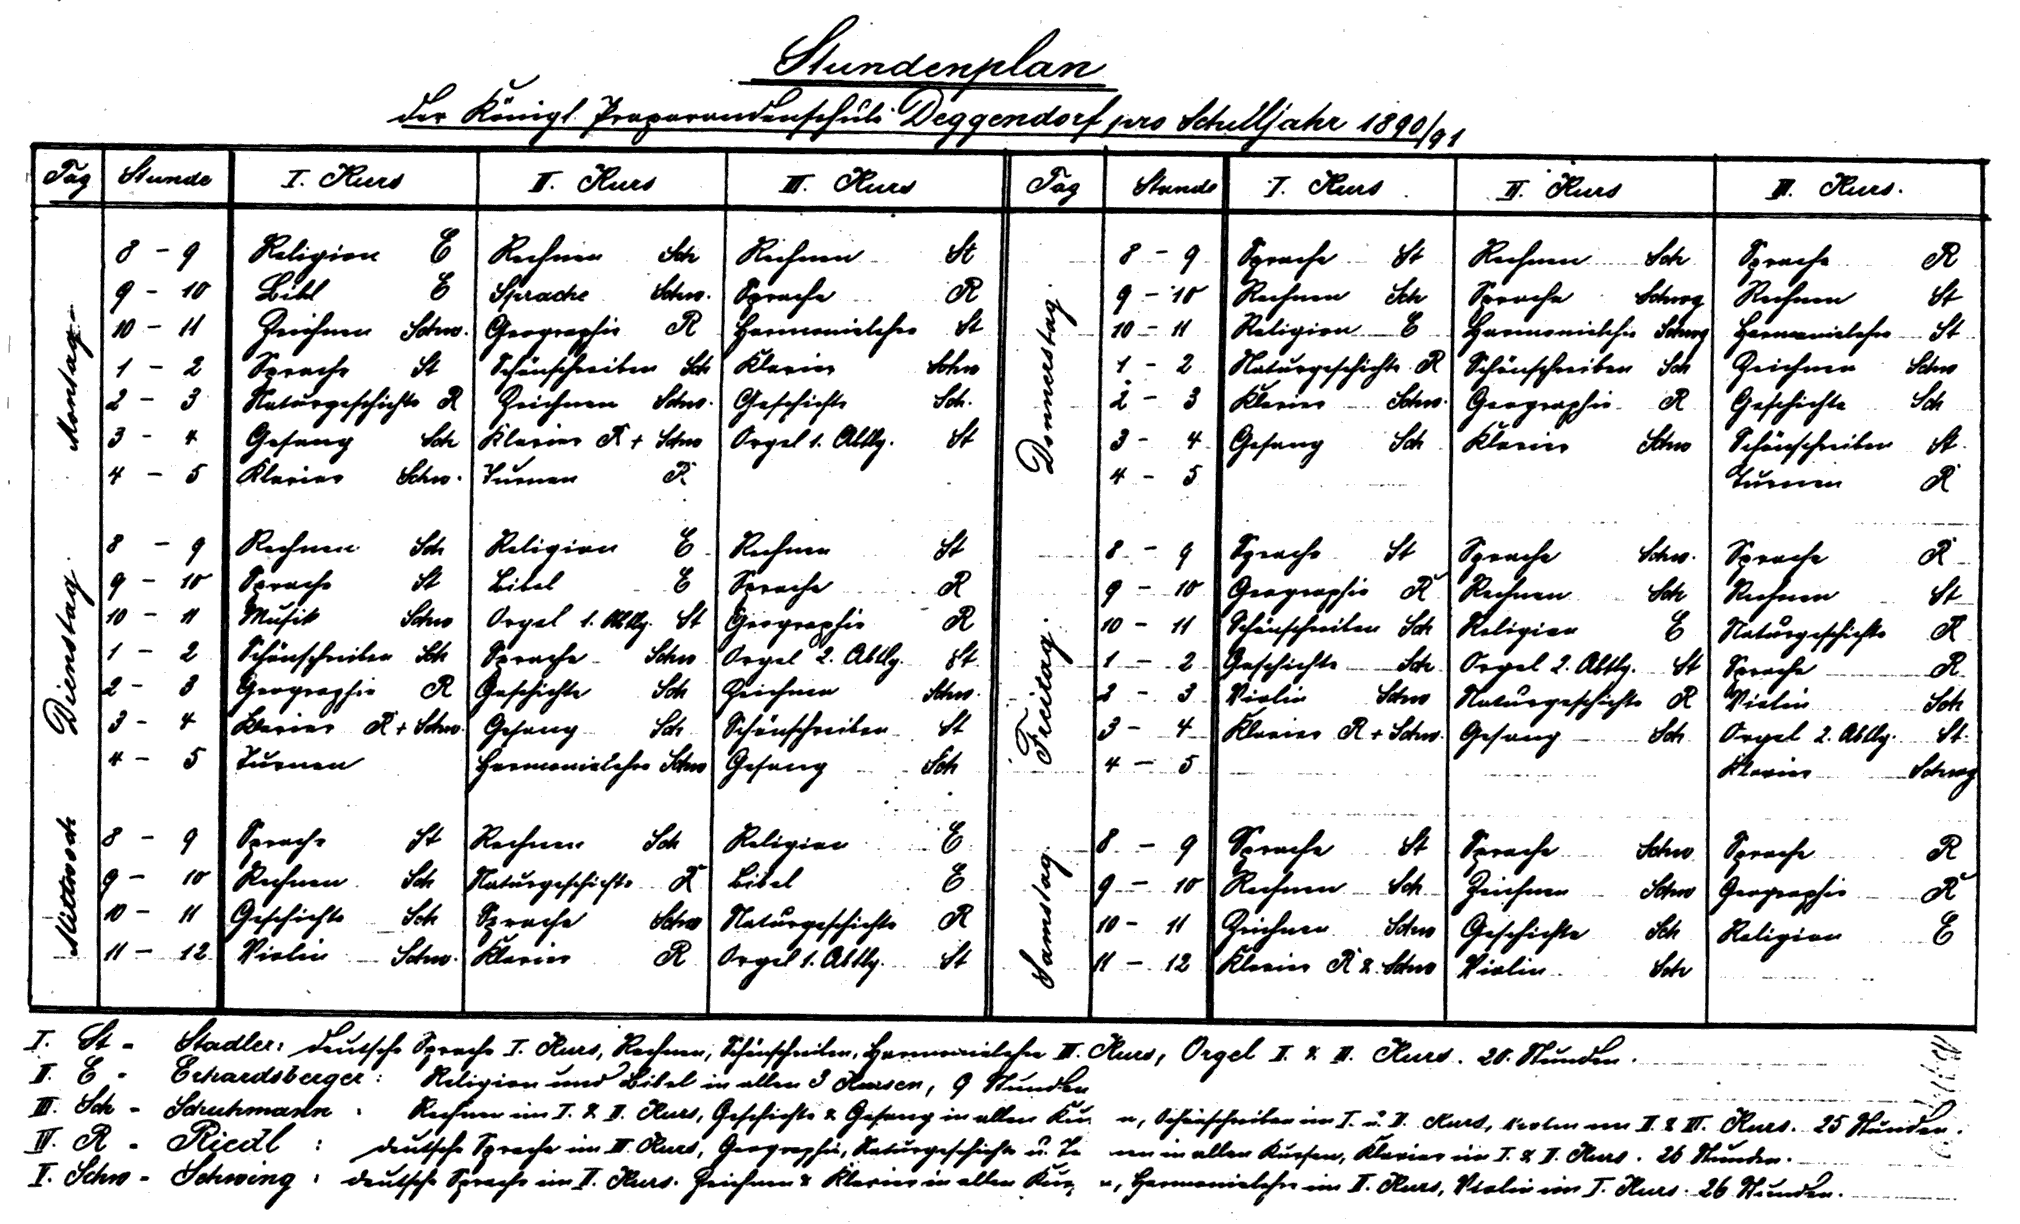 Stundenplan
der Königl. Präparandenschule Deggendorf pro Schuljahr 1890/91
Tag Stunde I. Kurs II. Kurs III. Kurs Tag Stunde I. Kurs II. Kurs III. Kurs.
Montag
8 - 9 Religion E Rechnen Sch Rechnen St
9 - 10 Bibl E Sprache Schw. Sprache R
10 - 11 Zeichnen Schw. Geographie R Harmonielehre St
1 - 2 Sprache St Schönschreiben Sch Klavier Schw
2 - 3 Naturgeschichte R Zeichnen Schw. Geschichte Sch.
3 - 4 Gesang Sch Klavier R + Schw Orgel 1. Abtlg. St
4 - 5 Klavier Schw. Turnen R
Dienstag.
8 - 9 Rechnen Sch Religion E Rechnen St
9 - 10 Sprache St Bibel E Sprache R
10 - 11 Musik Schw Orgel 1. Abtlg. St Geographie R
1 - 2 Schönschreiben Sch Sprache Schw Orgel 2. Abtlg. St
2 - 3 Geographie R Geschichte Sch Zeichnen Schw.
3 - 4 Klavier R + Schw. Gesang Sch Schönschreiben St
4 - 5 Turnen Harmonielehre Schw Gesang Sch
Mittwoch
8 - 9 Sprache St Rechnen Sch Religion E
9 - 10 Rechnen Sch Naturgeschichte R Bibel E
10 - 11 Geschichte Sch Sprache Schw Naturgeschichte R
11 - 12 Violin Schw. Klavier R Orgel 1. Abtlg. St
Donnerstag.
8 - 9 Sprache St Rechnen Sch Sprache R
9 - 10 Rechnen Sch Sprache Schwg Rechnen St
10 - 11 Religion E Harmonielehre Schwg Harmonielehre St
1 - 2 Naturgeschichte R Schönschreiben Sch Zeichnen Schw
2 - 3 Klavier Schw. Geographie R Geschichte Sch
3 - 4 Gesang Sch Klavier Schw Schönschreiben St.
4 - 5 Turnen R
Freitag.
8 - 9 Sprache St Sprache Schw. Sprache R
9 - 10 Geographie R Rechnen Sch Rechnen St
10 - 11 Schönschreiben Sch Religion E Naturgeschichte R
1 - 2 Geschichte Sch Orgel 2. Abtlg. St Sprache R
2 - 3 Violin Schw Naturgeschichte R Violin Sch
3 - 4 Klavier R + Schw. Gesang Sch Orgel 2. Abtlg. St
4 - 5 Klavier Schwg
Samstag.
8 - 9 Sprache St Sprache Schw Sprache R
9 - 10 Rechnen Sch Zeichnen Schw Geographie R
10 - 11 Zeichnen Schw Geschichte Sch Religion E
11 - 12 Klavier R & Schw Violin Sch
I. St - Stadler: deutsche Sprache I. Kurs, Rechnen, Schönschreiben, Harmonielehre III. Kurs, Orgel II. & III. Kurs. 20 Stunden.
II. E - Erhardsberger: Religion und Bibel in allen 3 Kursen, 9 Stunden
III. Sch - Schuhmann: Rechnen im I. & II. Kurs, Geschichte & Gesang in allen Ku n, Schönschreiben im I. u. II. Kurs, Violin im II. & III. Kurs. 25 Stunden.
IV. R - Riedl: deutsche Sprache im III. Kurs, Geographie, Naturgeschichte u. Tu nen in allen Kursen, Klavier im I. & II. Kurs. 26 Stunden.
V. Schw - Schwing: deutsche Sprache im II. Kurs. Zeichnen & Klavier in allen Kur n, Harmonielehre im II. Kurs, Violin im I. Kurs. 26 Stunden.